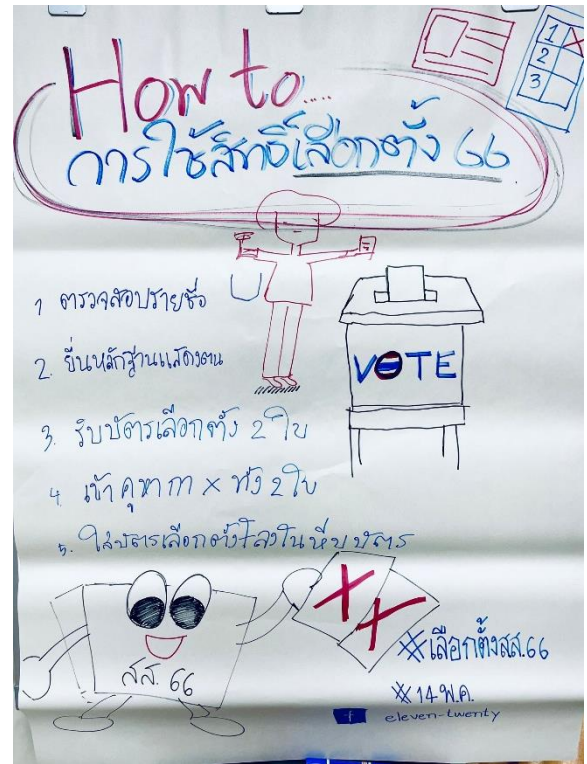 How to.....
การใช้สิทธิ์เลือกตั้ง 66
1 X
2
3
1 ตรวจสอบรายชื่อ
2. ยื่นหลักฐานแสดงตน
3. รับบัตรเลือกตั้ง 2 ใบ
4 เข้าคูหากา X ทั้ง 2 ใบ
5. ใส่บัตรเลือกตั้งลงในหีบบัตร
VOTE
สส. 66
X X
#เลือกตั้งสส.66
#14 พ.ค.
f eleven-twenty